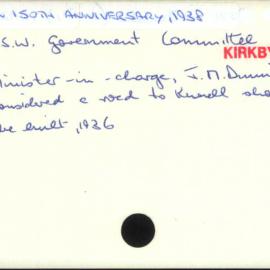 150TH ANNIVERSARY, 1938
S.W. Government Committee
KIRKBY
Minister-in-charge, J.M. Dunni
considered a road to Kurnell sho
be built, 1936